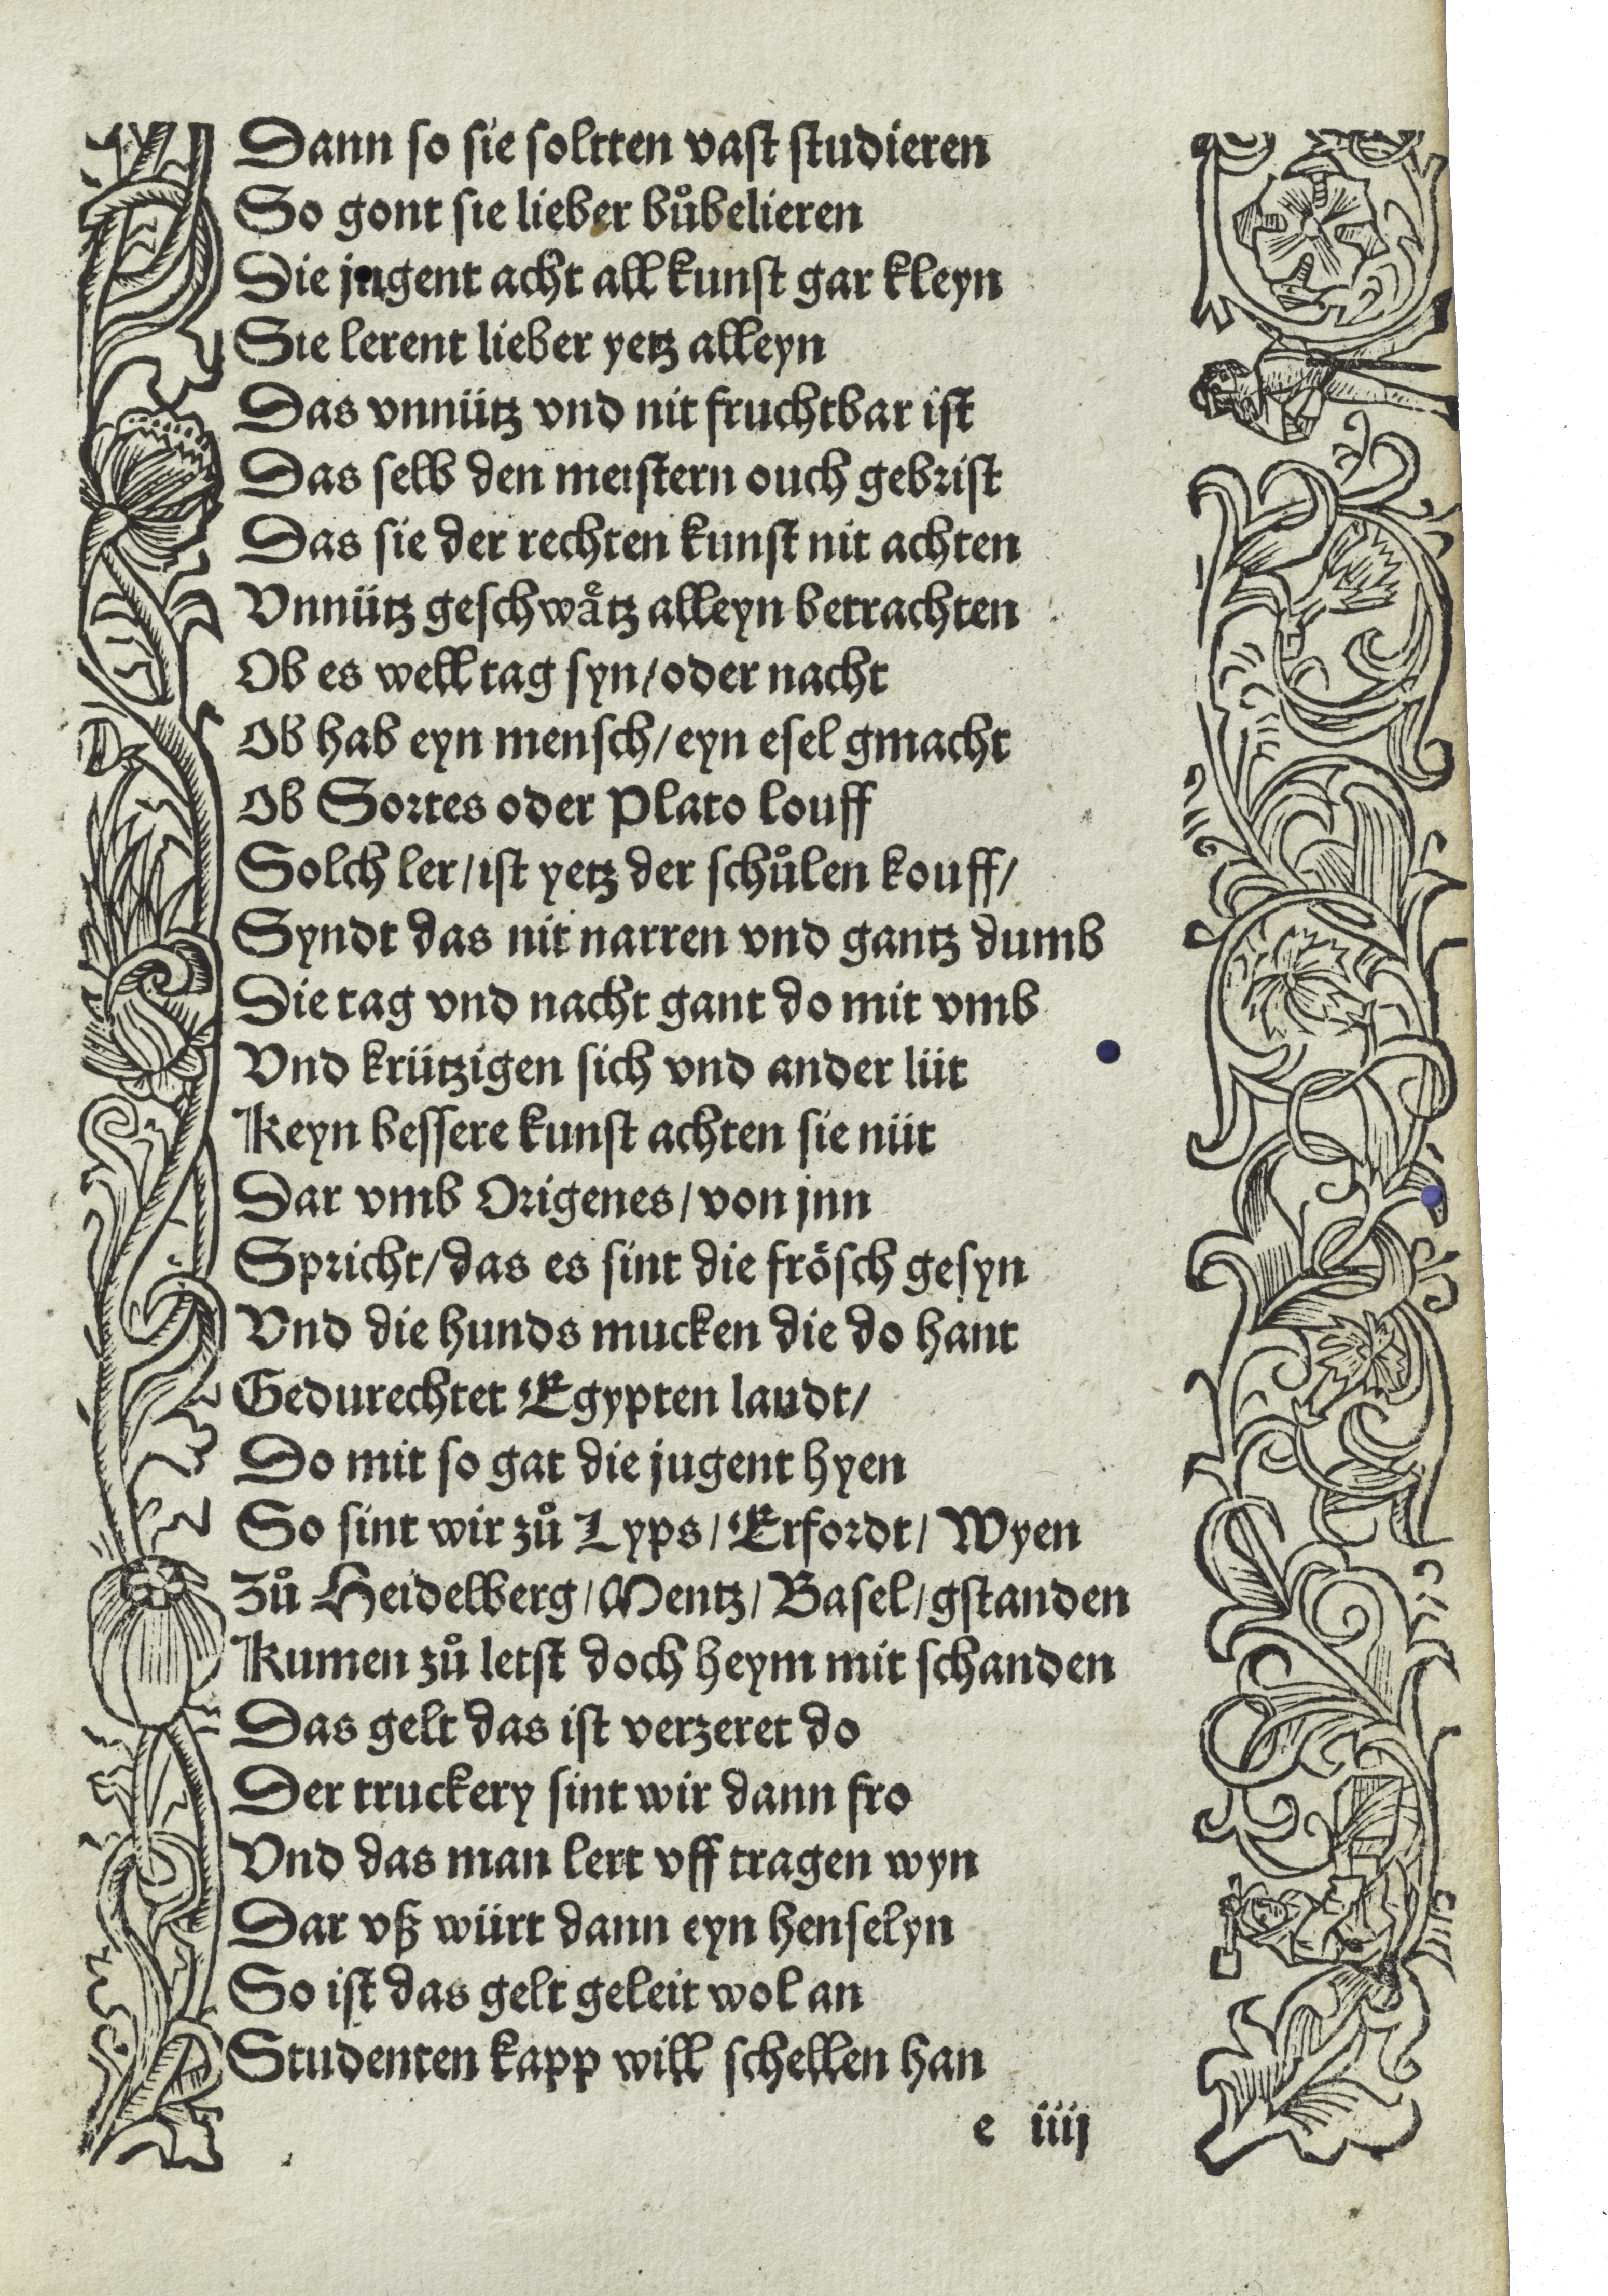 Dann so sie soltten vast studieren
So gont sie lieber bůbelieren
Die jugent acht all kunst gar kleyn
Sie lerent lieber yetz alleyn
Das vnnütz vnd nit fruchtbar ist
Das selb den meistern ouch gebrist
Das sie der rechten kunst nit achten
Vnnütz geschwaͤtz alleyn betrachten
Ob es well tag syn/oder nacht
Ob hab eyn mensch/eyn esel gmacht
Ob Sortes oder Plato louff
Solch ler/ist yetz der schůlen kouff/
Syndt das nit narren vnd gantz dumb
Die tag vnd nacht gant do mit vmb
Vnd krützigen sich vnd ander lüt
Keyn bessere kunst achten sie nüt
Dar vmb Origenes/von jnn
Spricht/das es sint die froͤsch gesyn
Vnd die hunds mucken die do hant
Gedurechtet Egypten laudt/
Do mit so gat die jugent hyen
So sint wir zů Lyps/Erfordt/Wyen
Zů Heidelberg/Mentz/Basel/gstanden
Kumen zů letst doch heym mit schanden
Das gelt das ist verzeret do
Der truckery sint wir dann fro
Vnd das man lert vff tragen wyn
Dar vß würt dann eyn henselyn
So ist das gelt geleit wol an
Studenten kapp will schellen han
e iiij